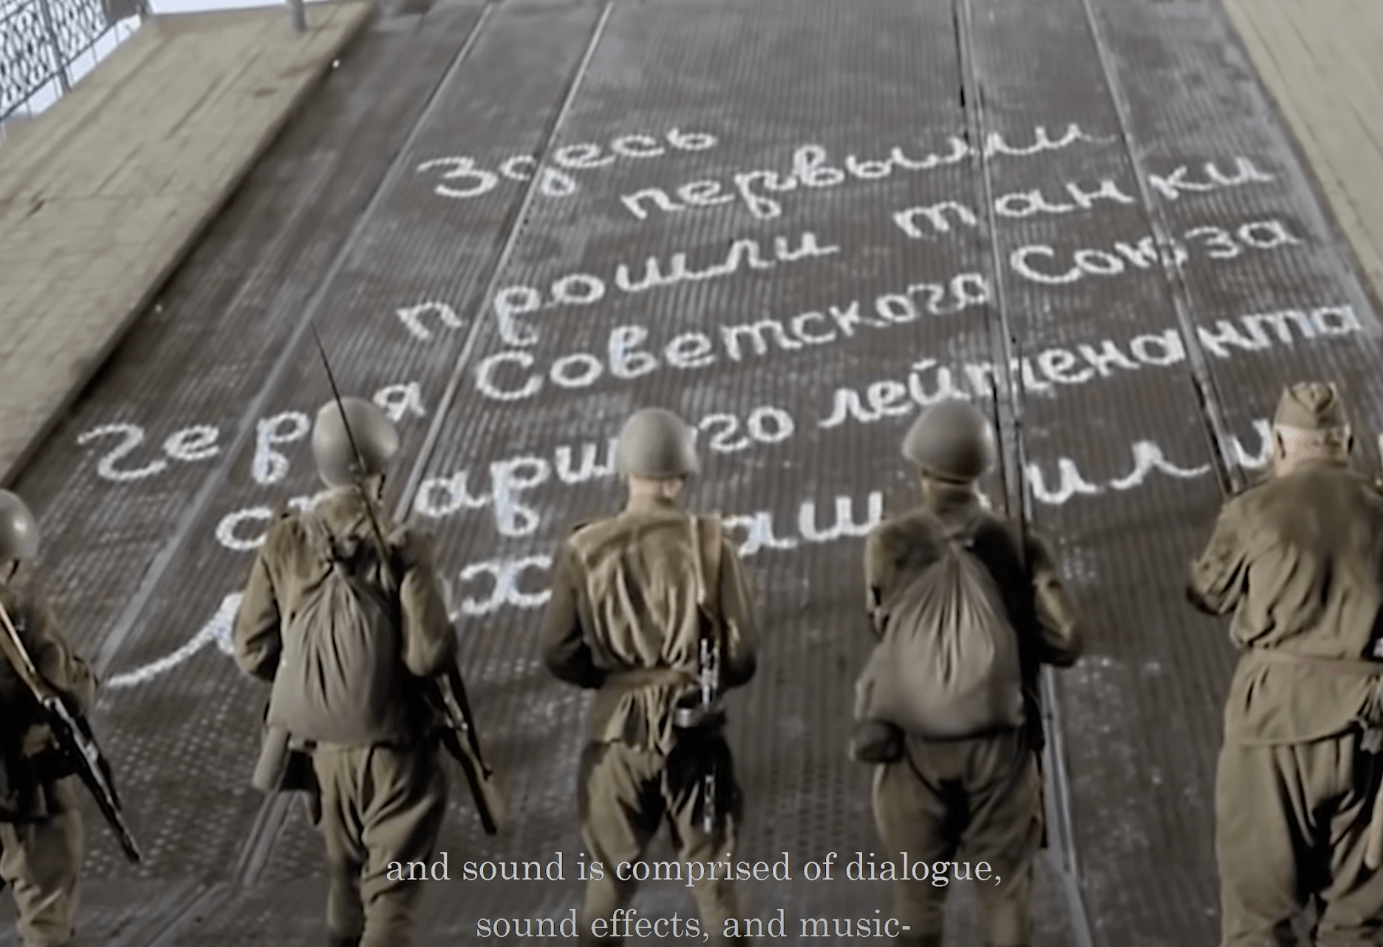 Здесь
первыми
прошли танки
героя Советского Союза
старшего лейтенанта
and sound is comprised of dialogue,
sound effects, and music-